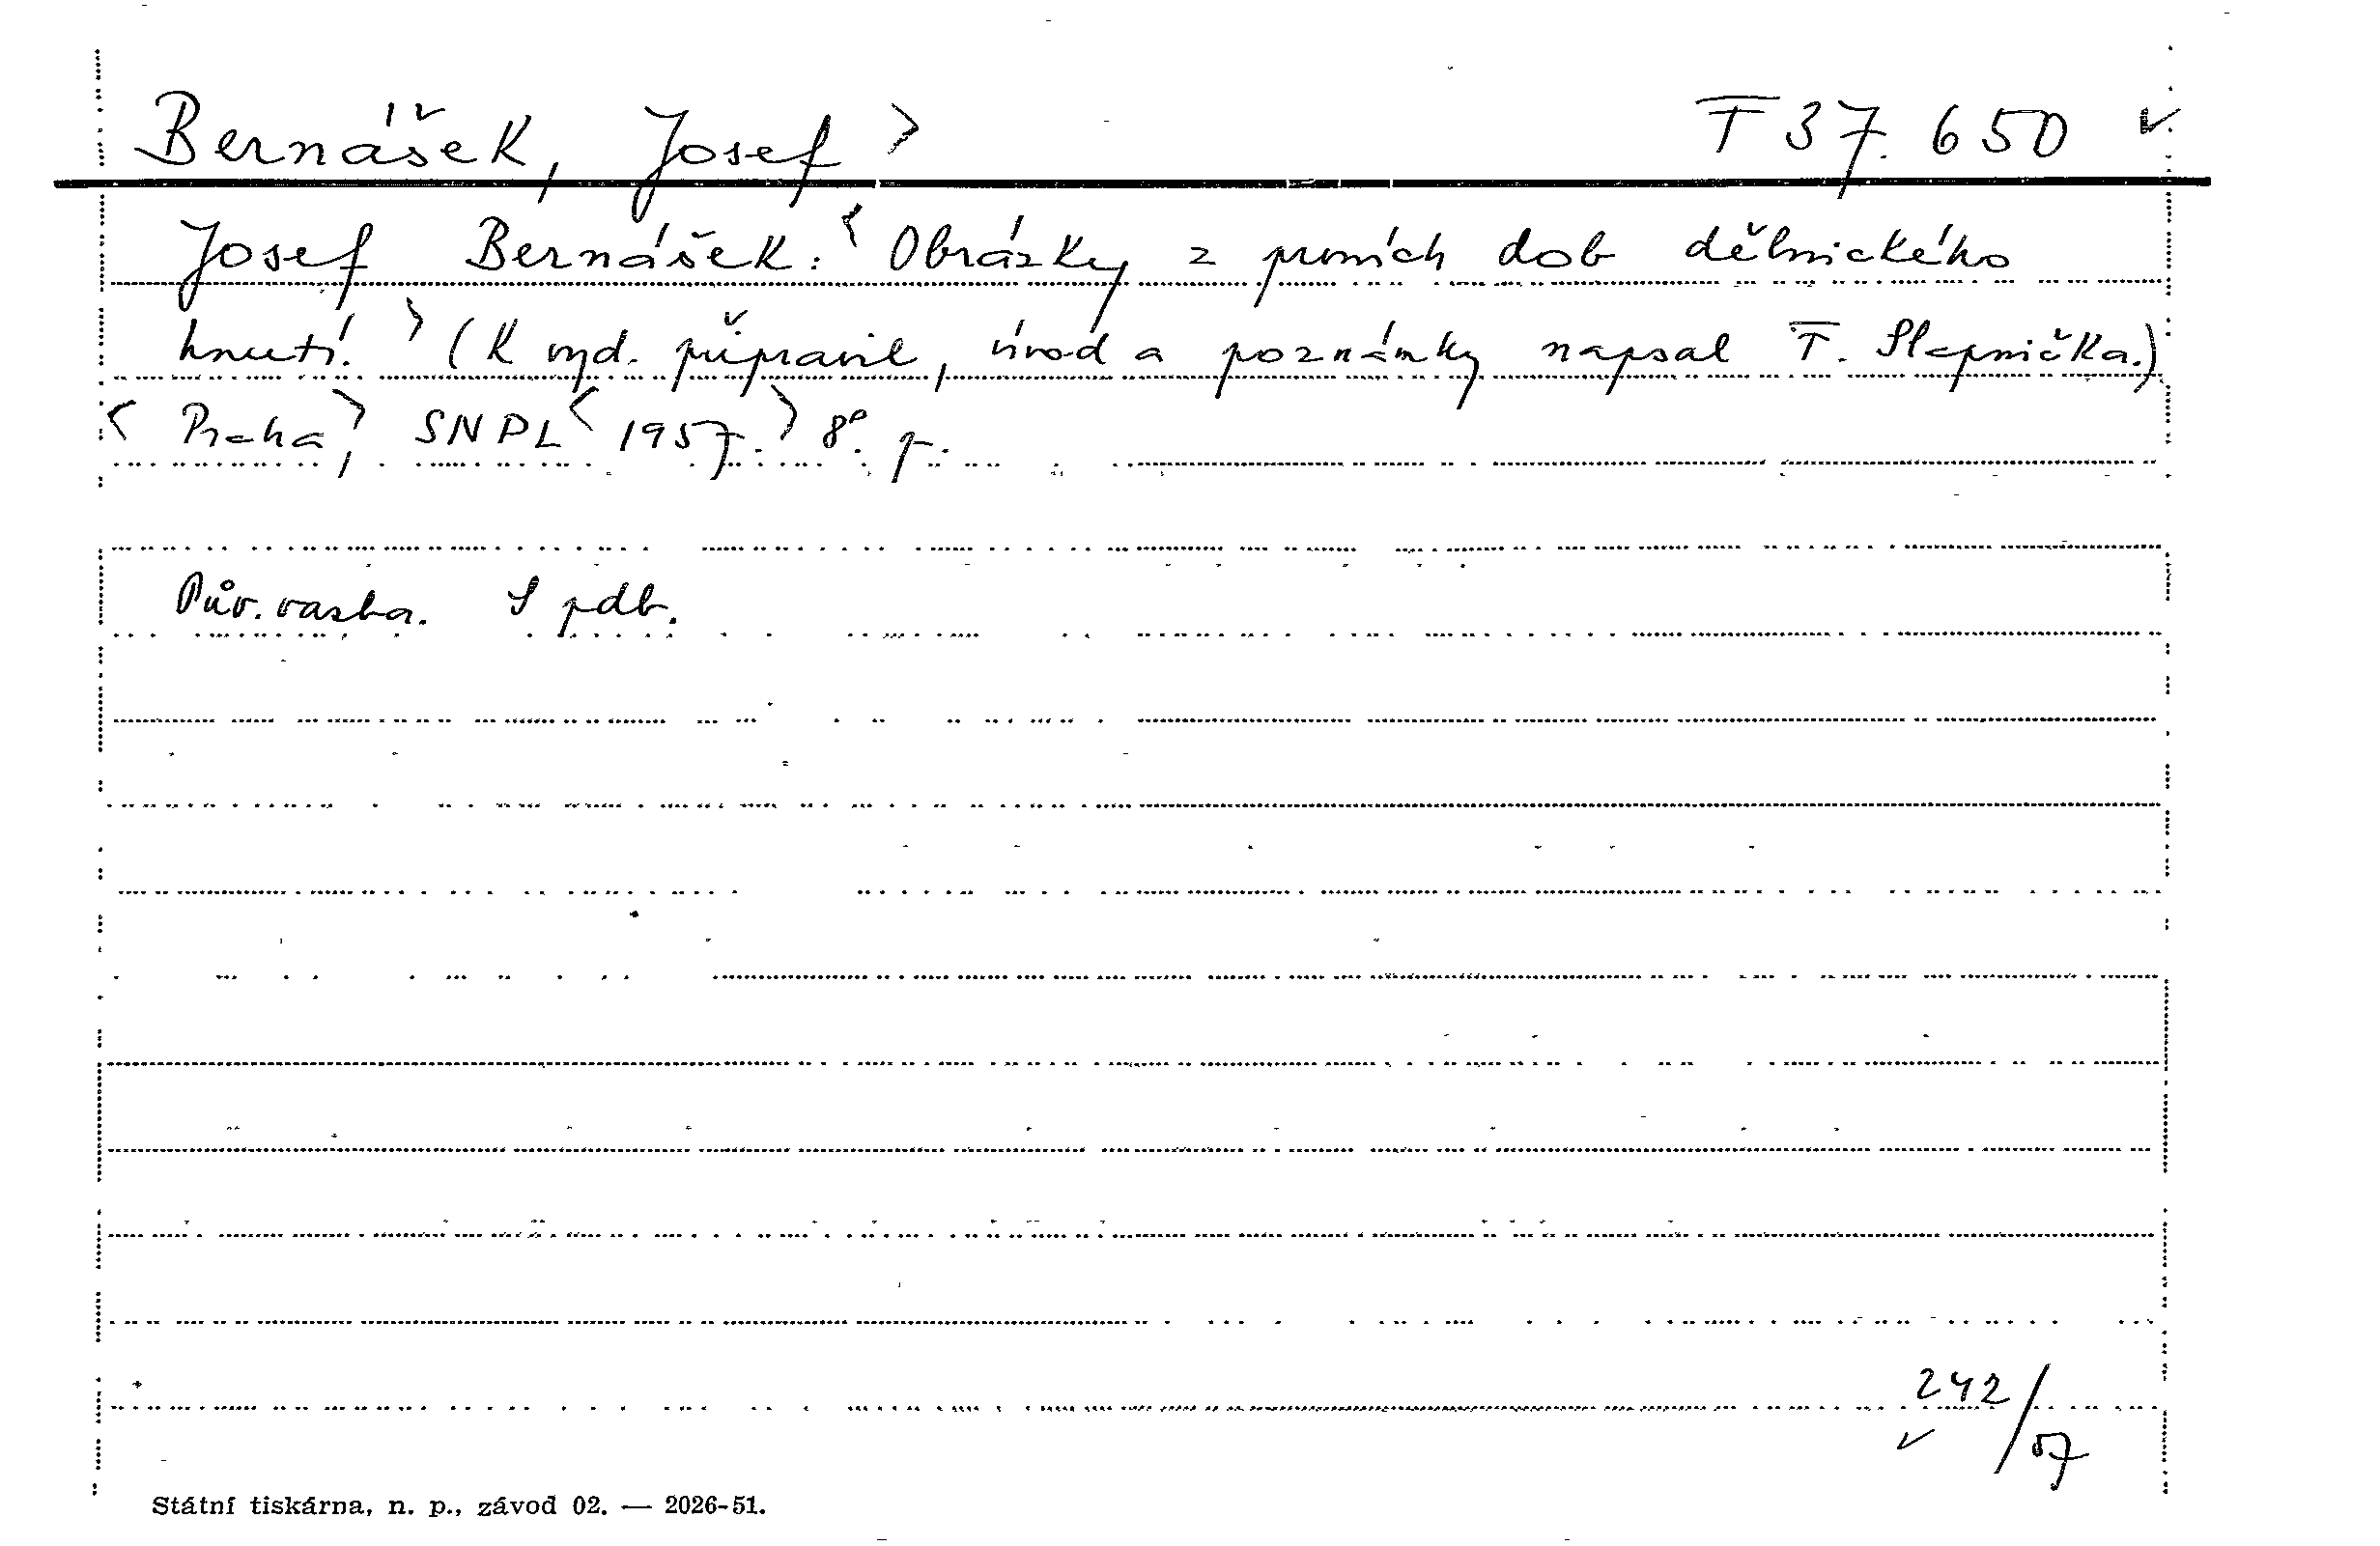 Bernášek, Josef > T 37.650 ✓
Josef Bernášek: < Obrázky z prvních dob dělnického
hnutí. > (K vyd. připravil, úvod a poznámky napsal T. Slepnička.)
< Praha, > SNPL < 1957. > 8°. p.
Pův. vazba. S pdb.
242/57
✓
Státní tiskárna, n. p., závod 02. — 2026-51.